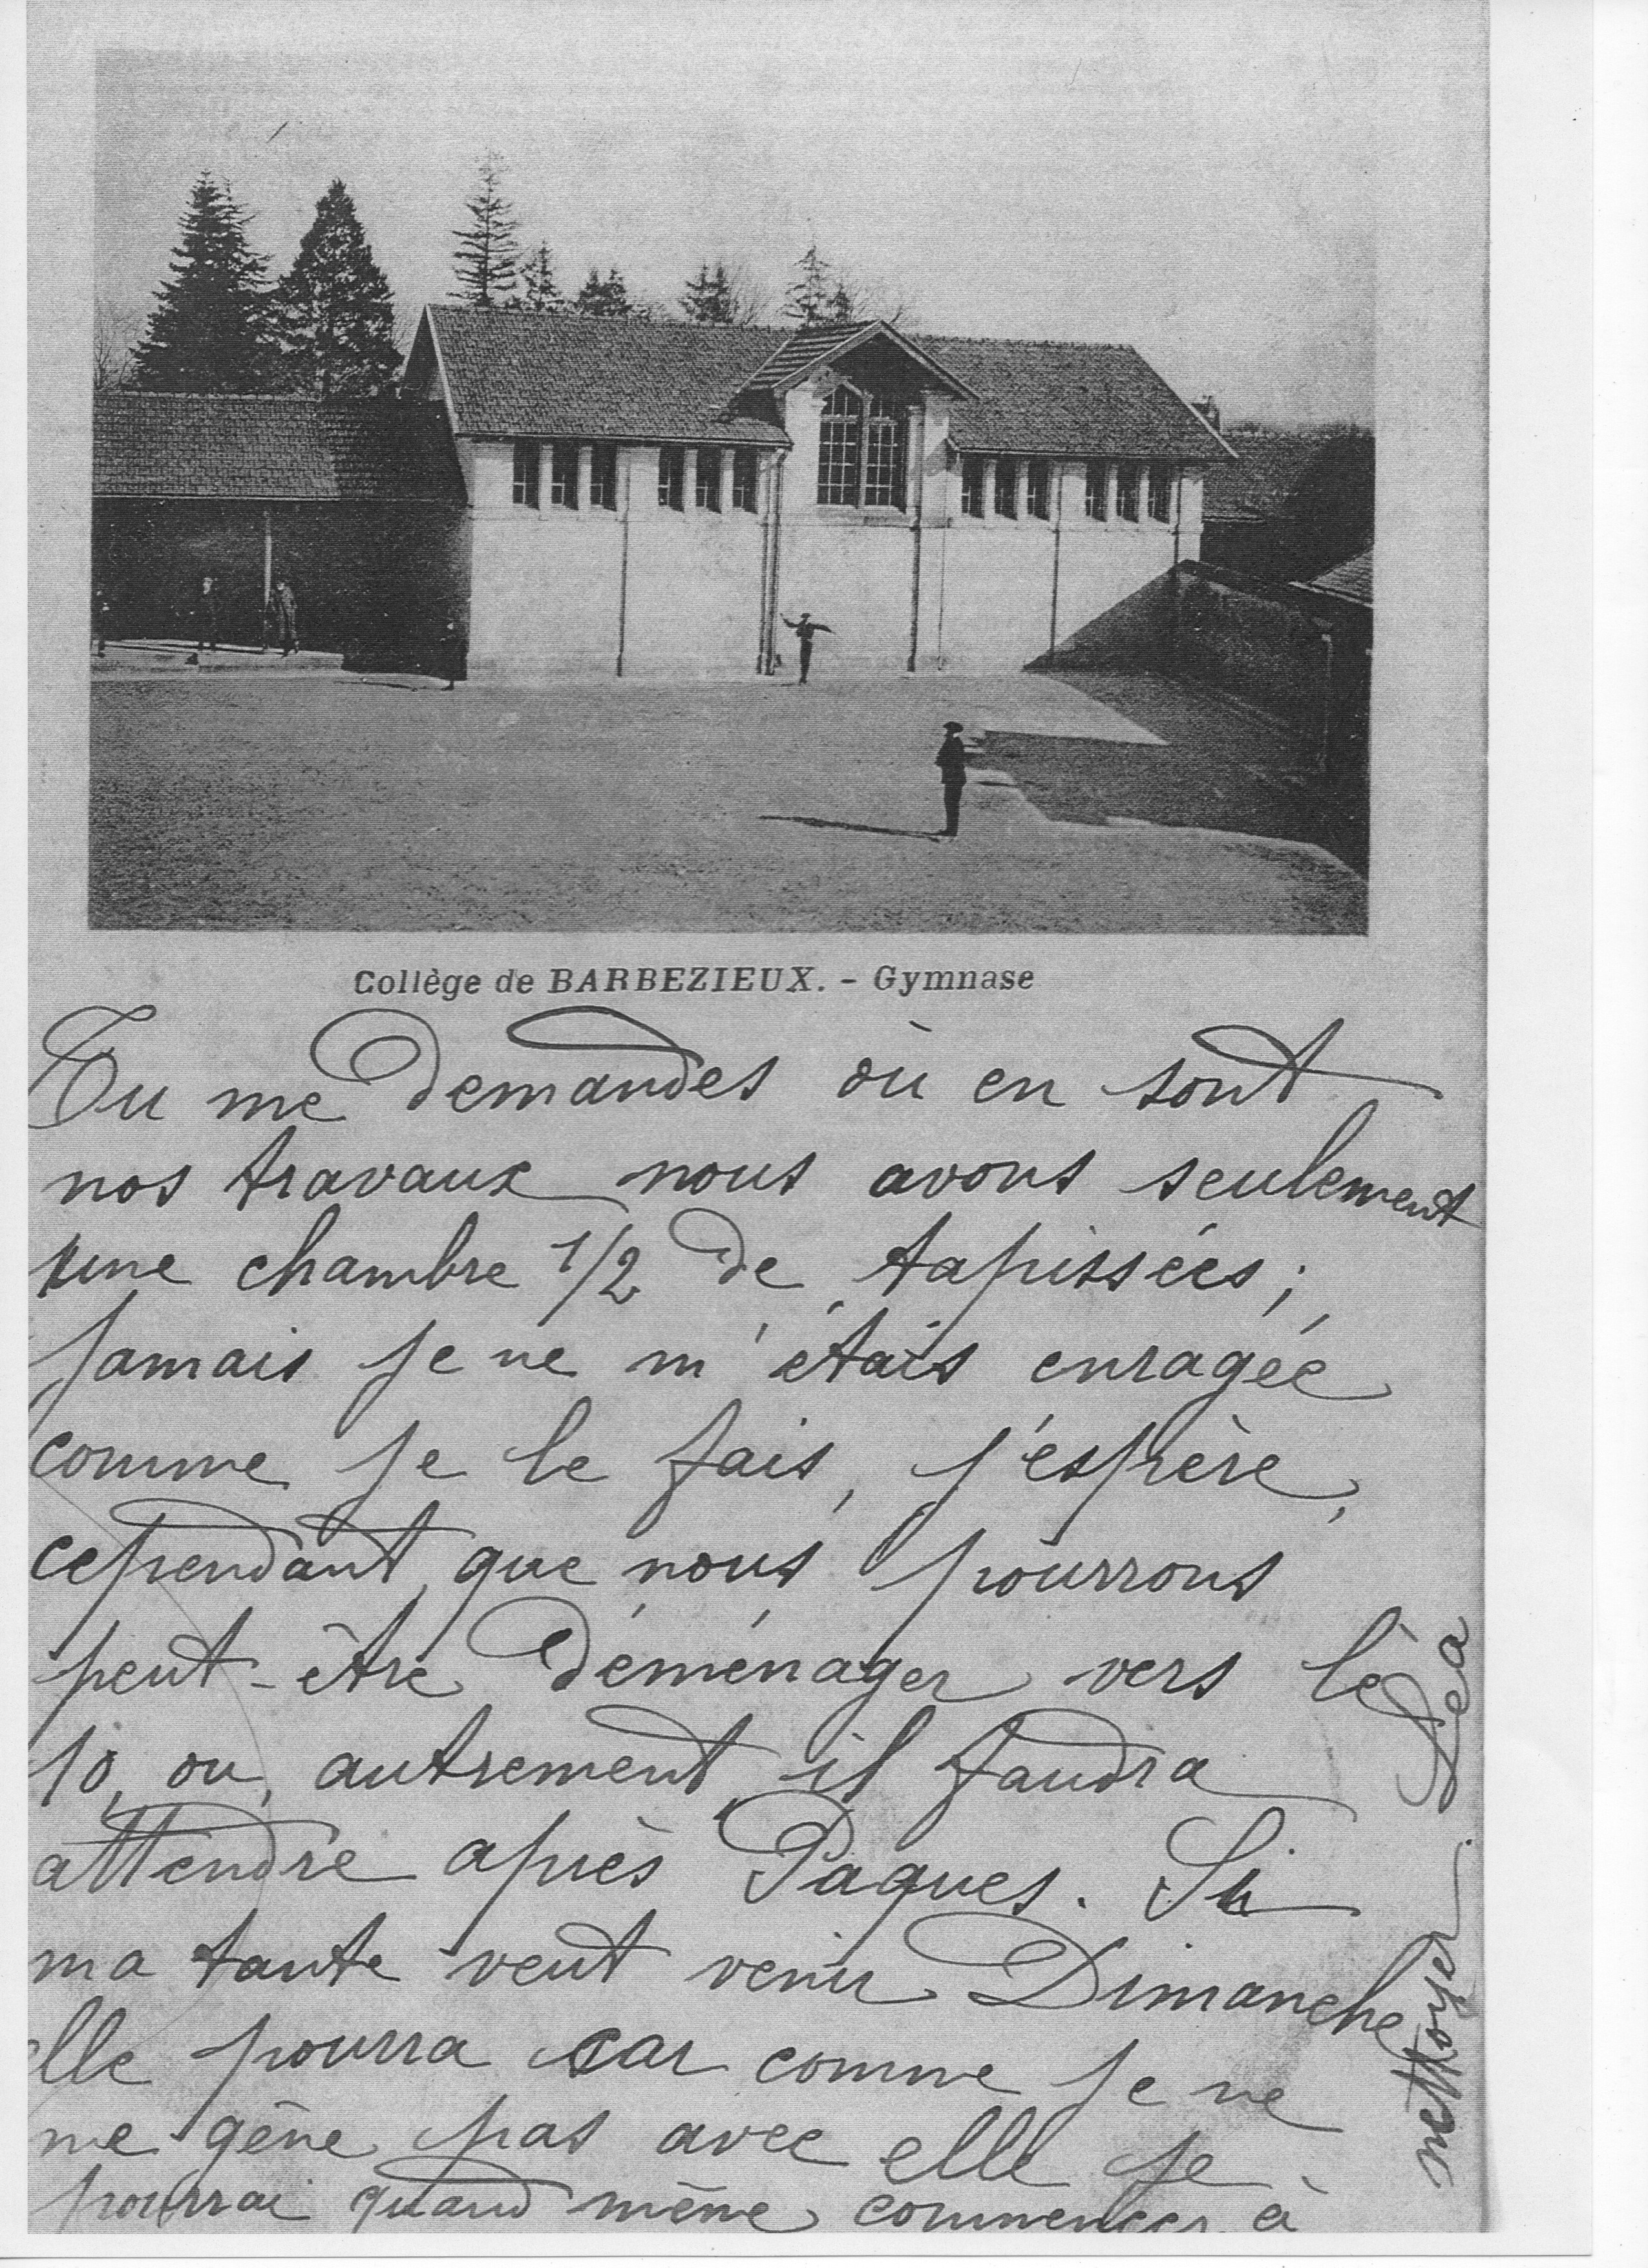 Collège de BARBEZIEUX. - Gymnase
Tu me demandes où en sont
nos travaux nous avons seulement
une chambre 1/2 de tapissées;
jamais je ne m'étais enragée
comme je le fais, j'espère,
cependant que nous pourrons
peut-être déménager vers le
10, ou autrement il faudra
attendre après Paques. Si
ma tante veut venir Dimanche
elle pourra car comme je ne
me gêne pas avec elle je
pourrai quand même commencer à
nettoyer.
Léa